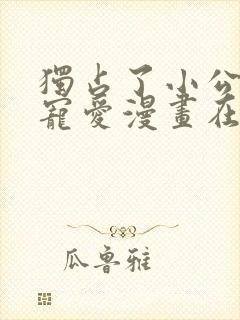 獨占了小公
寵愛漫畫在
瓜魯雅